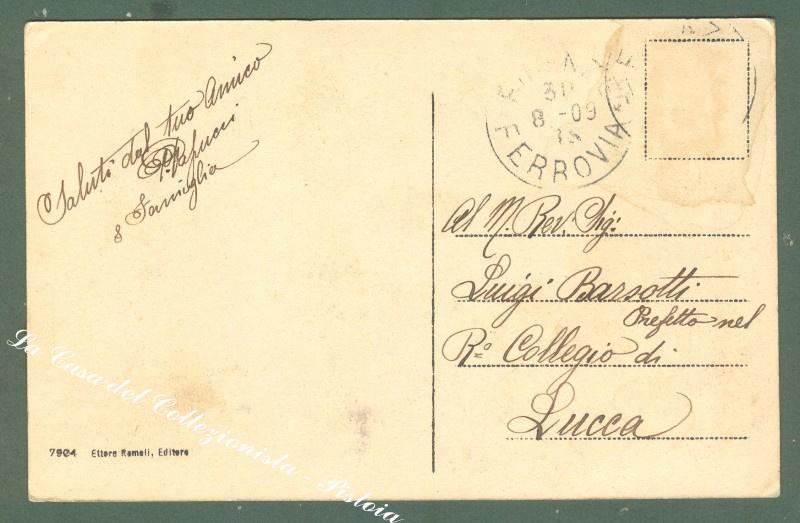 Saluti dal tuo amico
P. Papucci
& Famiglia
31
8 - 09
FERROVIA
Al M. Rev. Sig:
Luigi Barsotti
Prefetto nel
R.º Collegio di
Lucca
7904 Ettore Remali, Editore
La Casa del Collezionista - Pistoia